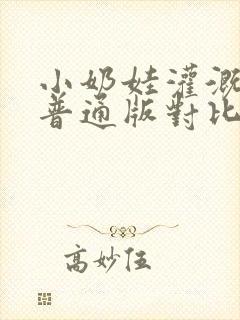 小奶娃灌溉
普通版對比
高妙伍